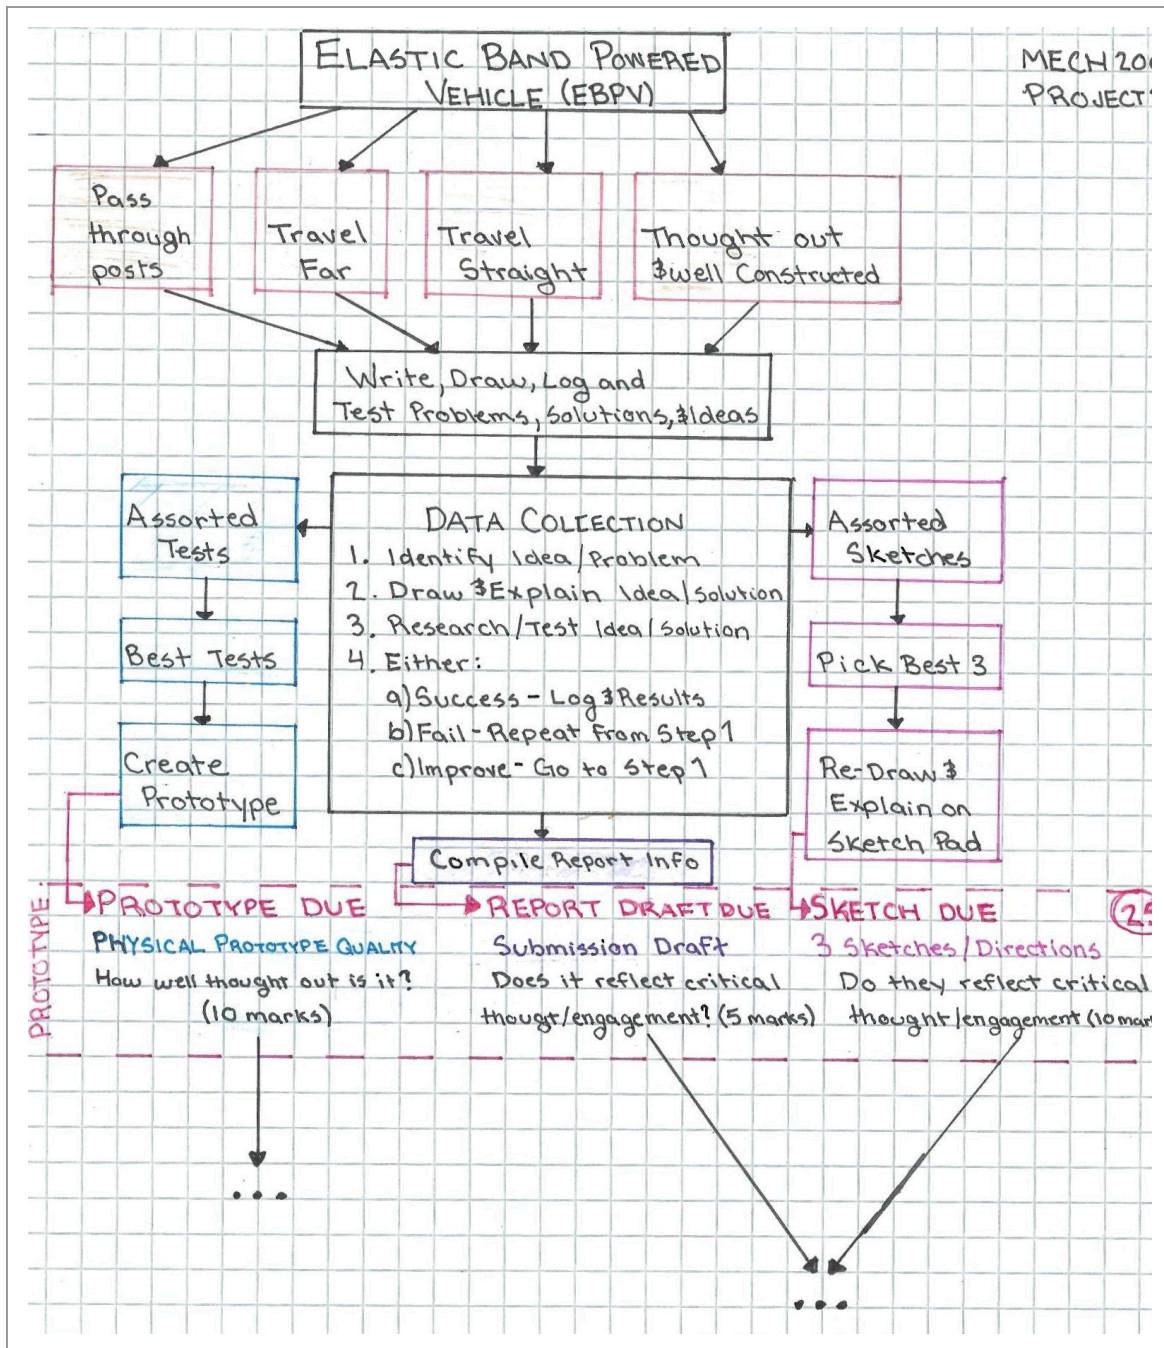 ELASTIC BAND POWERED
VEHICLE (EBPV)
MECH 20
PROJECT
Pass
through
posts
Travel
Far
Travel
Straight
Thought out
& well Constructed
Write, Draw, Log and
Test Problems, Solutions, & Ideas
Assorted
Tests
Best Tests
Create
Prototype
DATA COLLECTION
1. Identify Idea/Problem
2. Draw & Explain Idea/Solution
3. Research/Test Idea/Solution
4. Either:
a) Success - Log & Results
b) Fail - Repeat from Step 1
c) Improve - Go to Step 1
Assorted
Sketches
Pick Best 3
Re-Draw &
Explain on
Sketch Pad
Compile Report Info
PROTOTYPE:
PROTOTYPE DUE
PHYSICAL PROTOTYPE QUALITY
How well thought out is it?
(10 marks)
REPORT DRAFT DUE
Submission Draft
Does it reflect critical
thougt/engagement? (5 marks)
SKETCH DUE
3 Sketches/Directions
Do they reflect critical
thought/engagement (10 mar
25
...
...